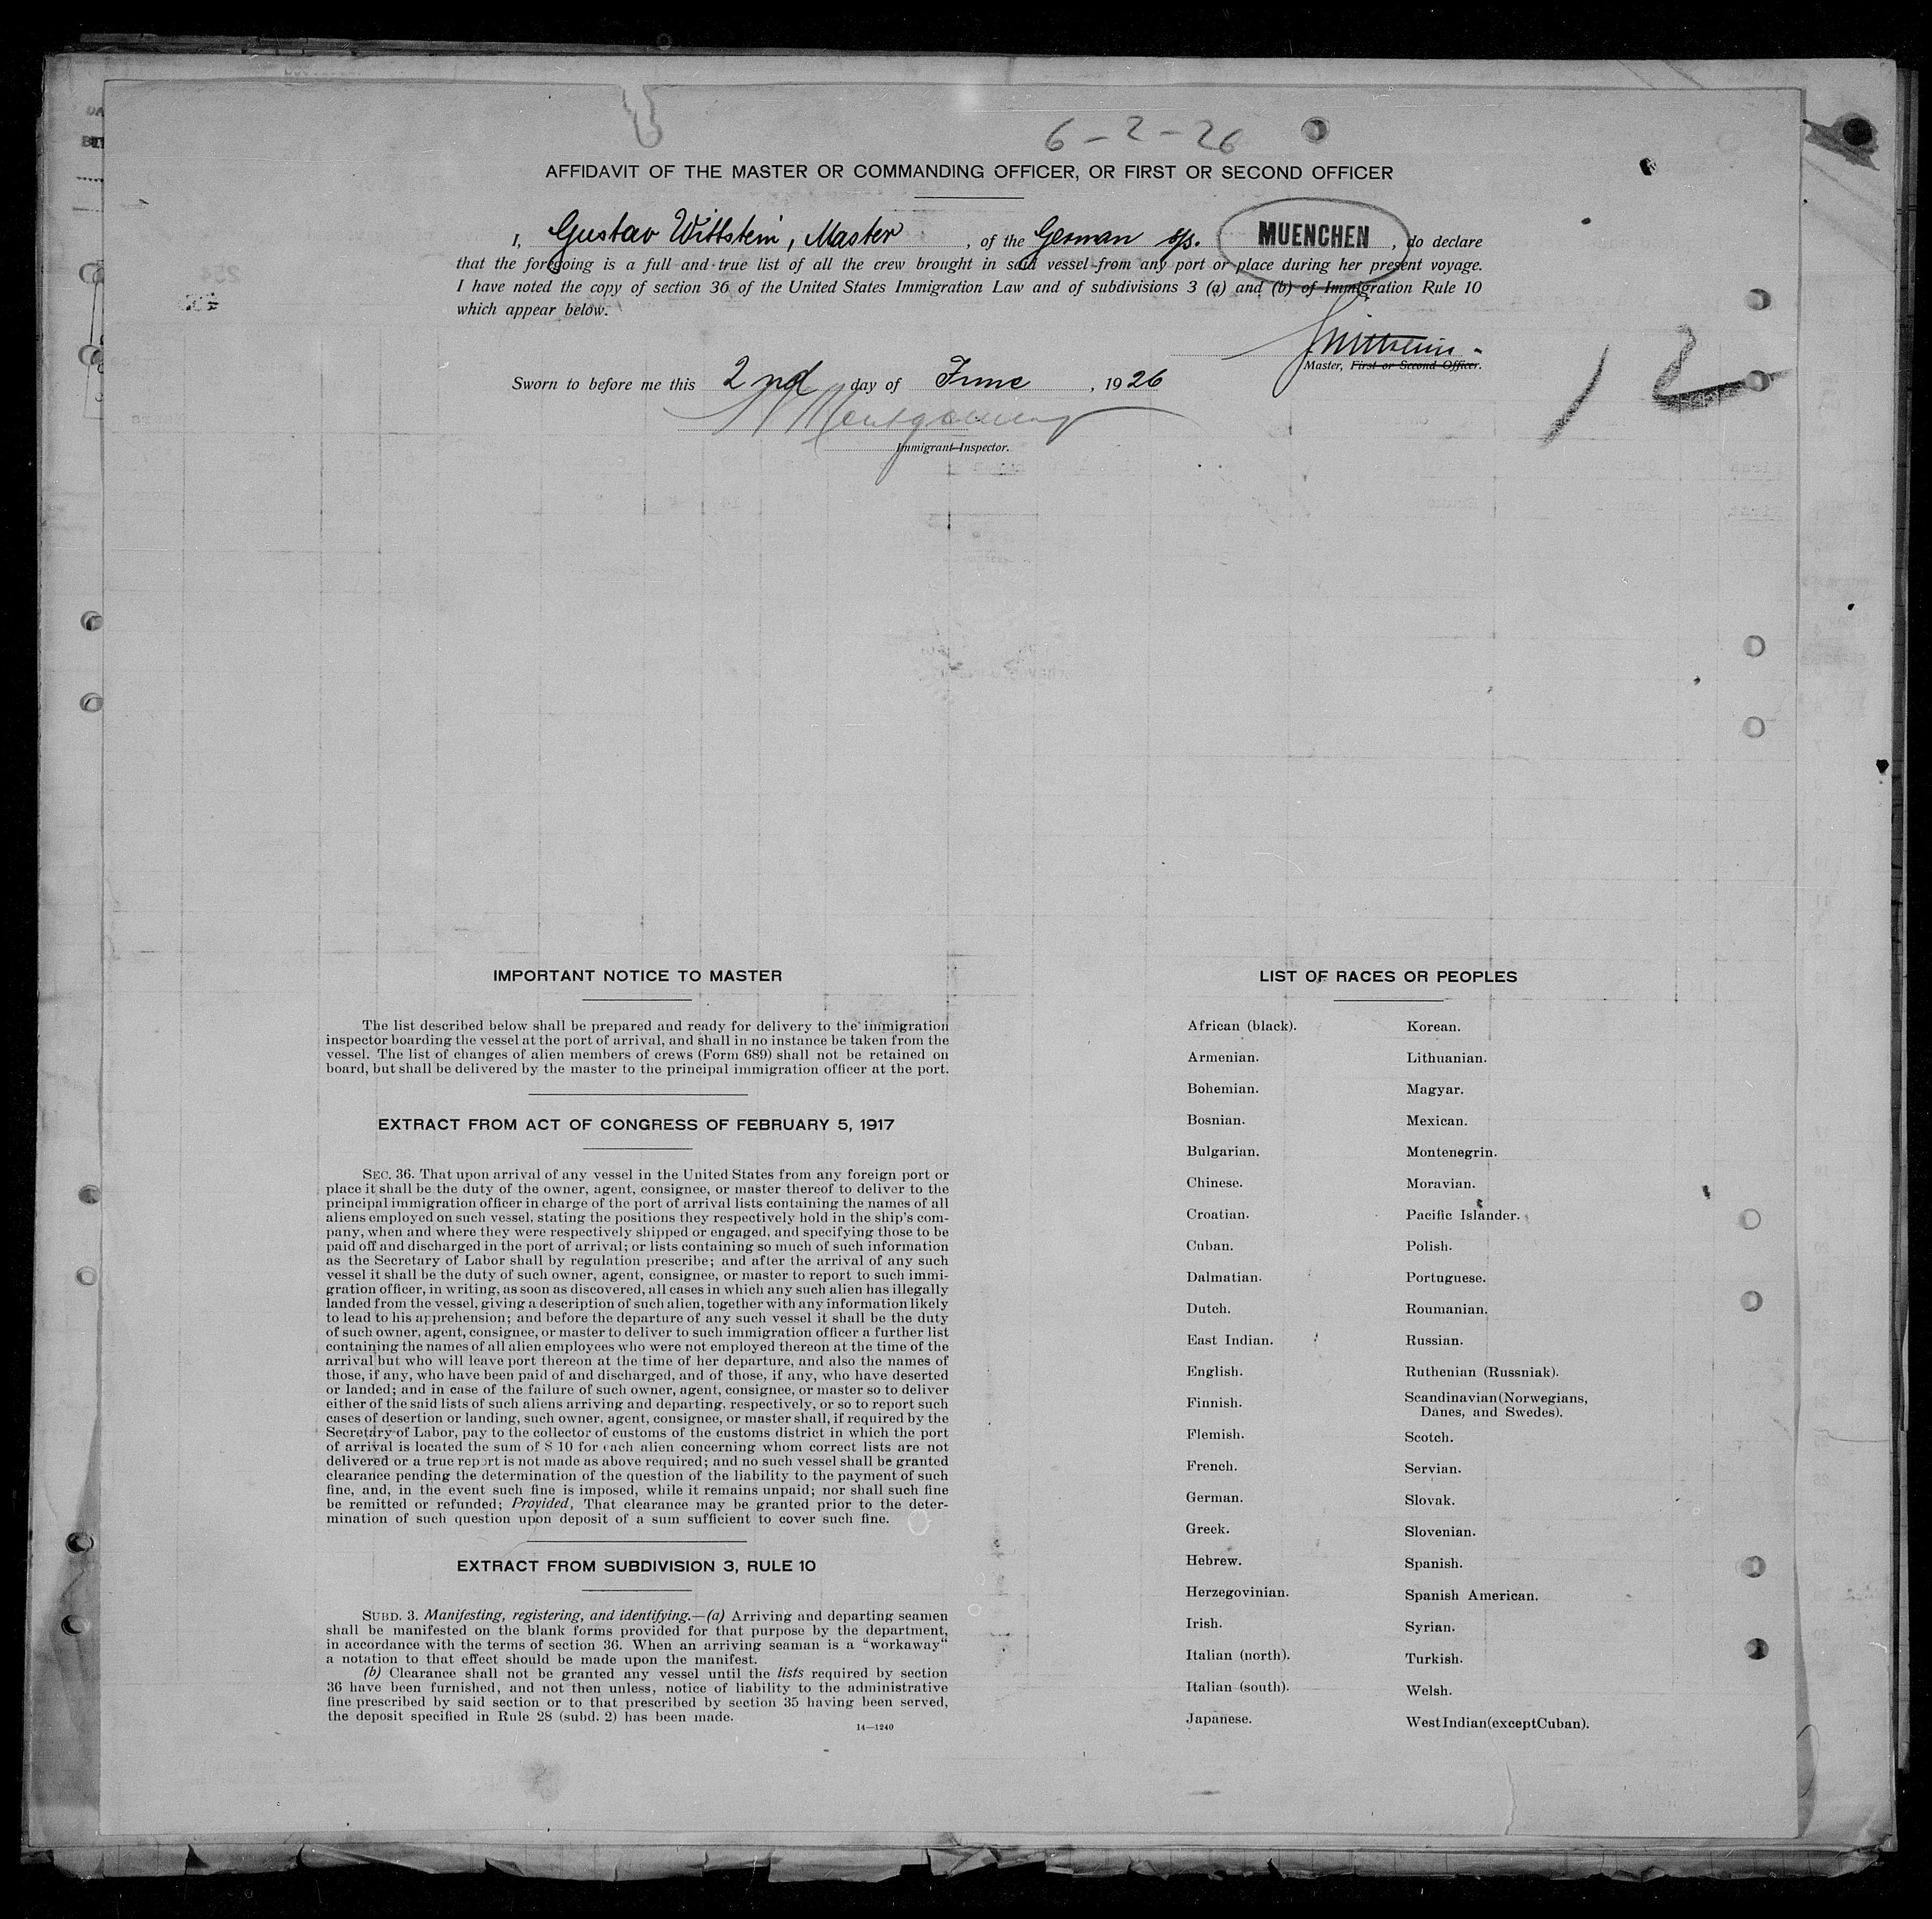 6-2-26
AFFIDAVIT OF THE MASTER OR COMMANDING OFFICER, OR FIRST OR SECOND OFFICER
I, Gustav Wittstein, Master, of the German s/s. MUENCHEN, do declare
that the foregoing is a full and true list of all the crew brought in said vessel from any port or place during her present voyage.
I have noted the copy of section 36 of the United States Immigration Law and of subdivisions 3 (a) and (b) of Immigration Rule 10
which appear below.
GWittstein.
Master, First or Second Officer.
12
Sworn to before me this 2nd day of June, 1926
Montgomery
Immigrant Inspector.
IMPORTANT NOTICE TO MASTER
The list described below shall be prepared and ready for delivery to the immigration
inspector boarding the vessel at the port of arrival, and shall in no instance be taken from the
vessel. The list of changes of alien members of crews (Form 689) shall not be retained on
board, but shall be delivered by the master to the principal immigration officer at the port.
EXTRACT FROM ACT OF CONGRESS OF FEBRUARY 5, 1917
SEC. 36. That upon arrival of any vessel in the United States from any foreign port or
place it shall be the duty of the owner, agent, consignee, or master thereof to deliver to the
principal immigration officer in charge of the port of arrival lists containing the names of all
aliens employed on such vessel, stating the positions they respectively hold in the ship's com-
pany, when and where they were respectively shipped or engaged, and specifying those to be
paid off and discharged in the port of arrival; or lists containing so much of such information
as the Secretary of Labor shall by regulation prescribe; and after the arrival of any such
vessel it shall be the duty of such owner, agent, consignee, or master to report to such immi-
gration officer, in writing, as soon as discovered, all cases in which any such alien has illegally
landed from the vessel, giving a description of such alien, together with any information likely
to lead to his apprehension; and before the departure of any such vessel it shall be the duty
of such owner, agent, consignee, or master to deliver to such immigration officer a further list
containing the names of all alien employees who were not employed thereon at the time of the
arrival but who will leave port thereon at the time of her departure, and also the names of
those, if any, who have been paid of and discharged, and of those, if any, who have deserted
or landed; and in case of the failure of such owner, agent, consignee, or master so to deliver
either of the said lists of such aliens arriving and departing, respectively, or so to report such
cases of desertion or landing, such owner, agent, consignee, or master shall, if required by the
Secretary of Labor, pay to the collector of customs of the customs district in which the port
of arrival is located the sum of $ 10 for each alien concerning whom correct lists are not
delivered or a true report is not made as above required; and no such vessel shall be granted
clearance pending the determination of the question of the liability to the payment of such
fine, and, in the event such fine is imposed, while it remains unpaid; nor shall such fine
be remitted or refunded; Provided, That clearance may be granted prior to the deter-
mination of such question upon deposit of a sum sufficient to cover such fine.
EXTRACT FROM SUBDIVISION 3, RULE 10
SUBD. 3. Manifesting, registering, and identifying.—(a) Arriving and departing seamen
shall be manifested on the blank forms provided for that purpose by the department,
in accordance with the terms of section 36. When an arriving seaman is a “workaway“
a notation to that effect should be made upon the manifest.
(b) Clearance shall not be granted any vessel until the lists required by section
36 have been furnished, and not then unless, notice of liability to the administrative
fine prescribed by said section or to that prescribed by section 35 having been served,
the deposit specified in Rule 28 (subd. 2) has been made.
14—1240
LIST OF RACES OR PEOPLES
African (black).
Armenian.
Bohemian.
Bosnian.
Bulgarian.
Chinese.
Croatian.
Cuban.
Dalmatian.
Dutch.
East Indian.
English.
Finnish.
Flemish.
French.
German.
Greek.
Hebrew.
Herzegovinian.
Irish.
Italian (north).
Italian (south).
Japanese.
Korean.
Lithuanian.
Magyar.
Mexican.
Montenegrin.
Moravian.
Pacific Islander.
Polish.
Portuguese.
Roumanian.
Russian.
Ruthenian (Russniak).
Scandinavian (Norwegians,
Danes, and Swedes).
Scotch.
Servian.
Slovak.
Slovenian.
Spanish.
Spanish American.
Syrian.
Turkish.
Welsh.
West Indian (except Cuban).